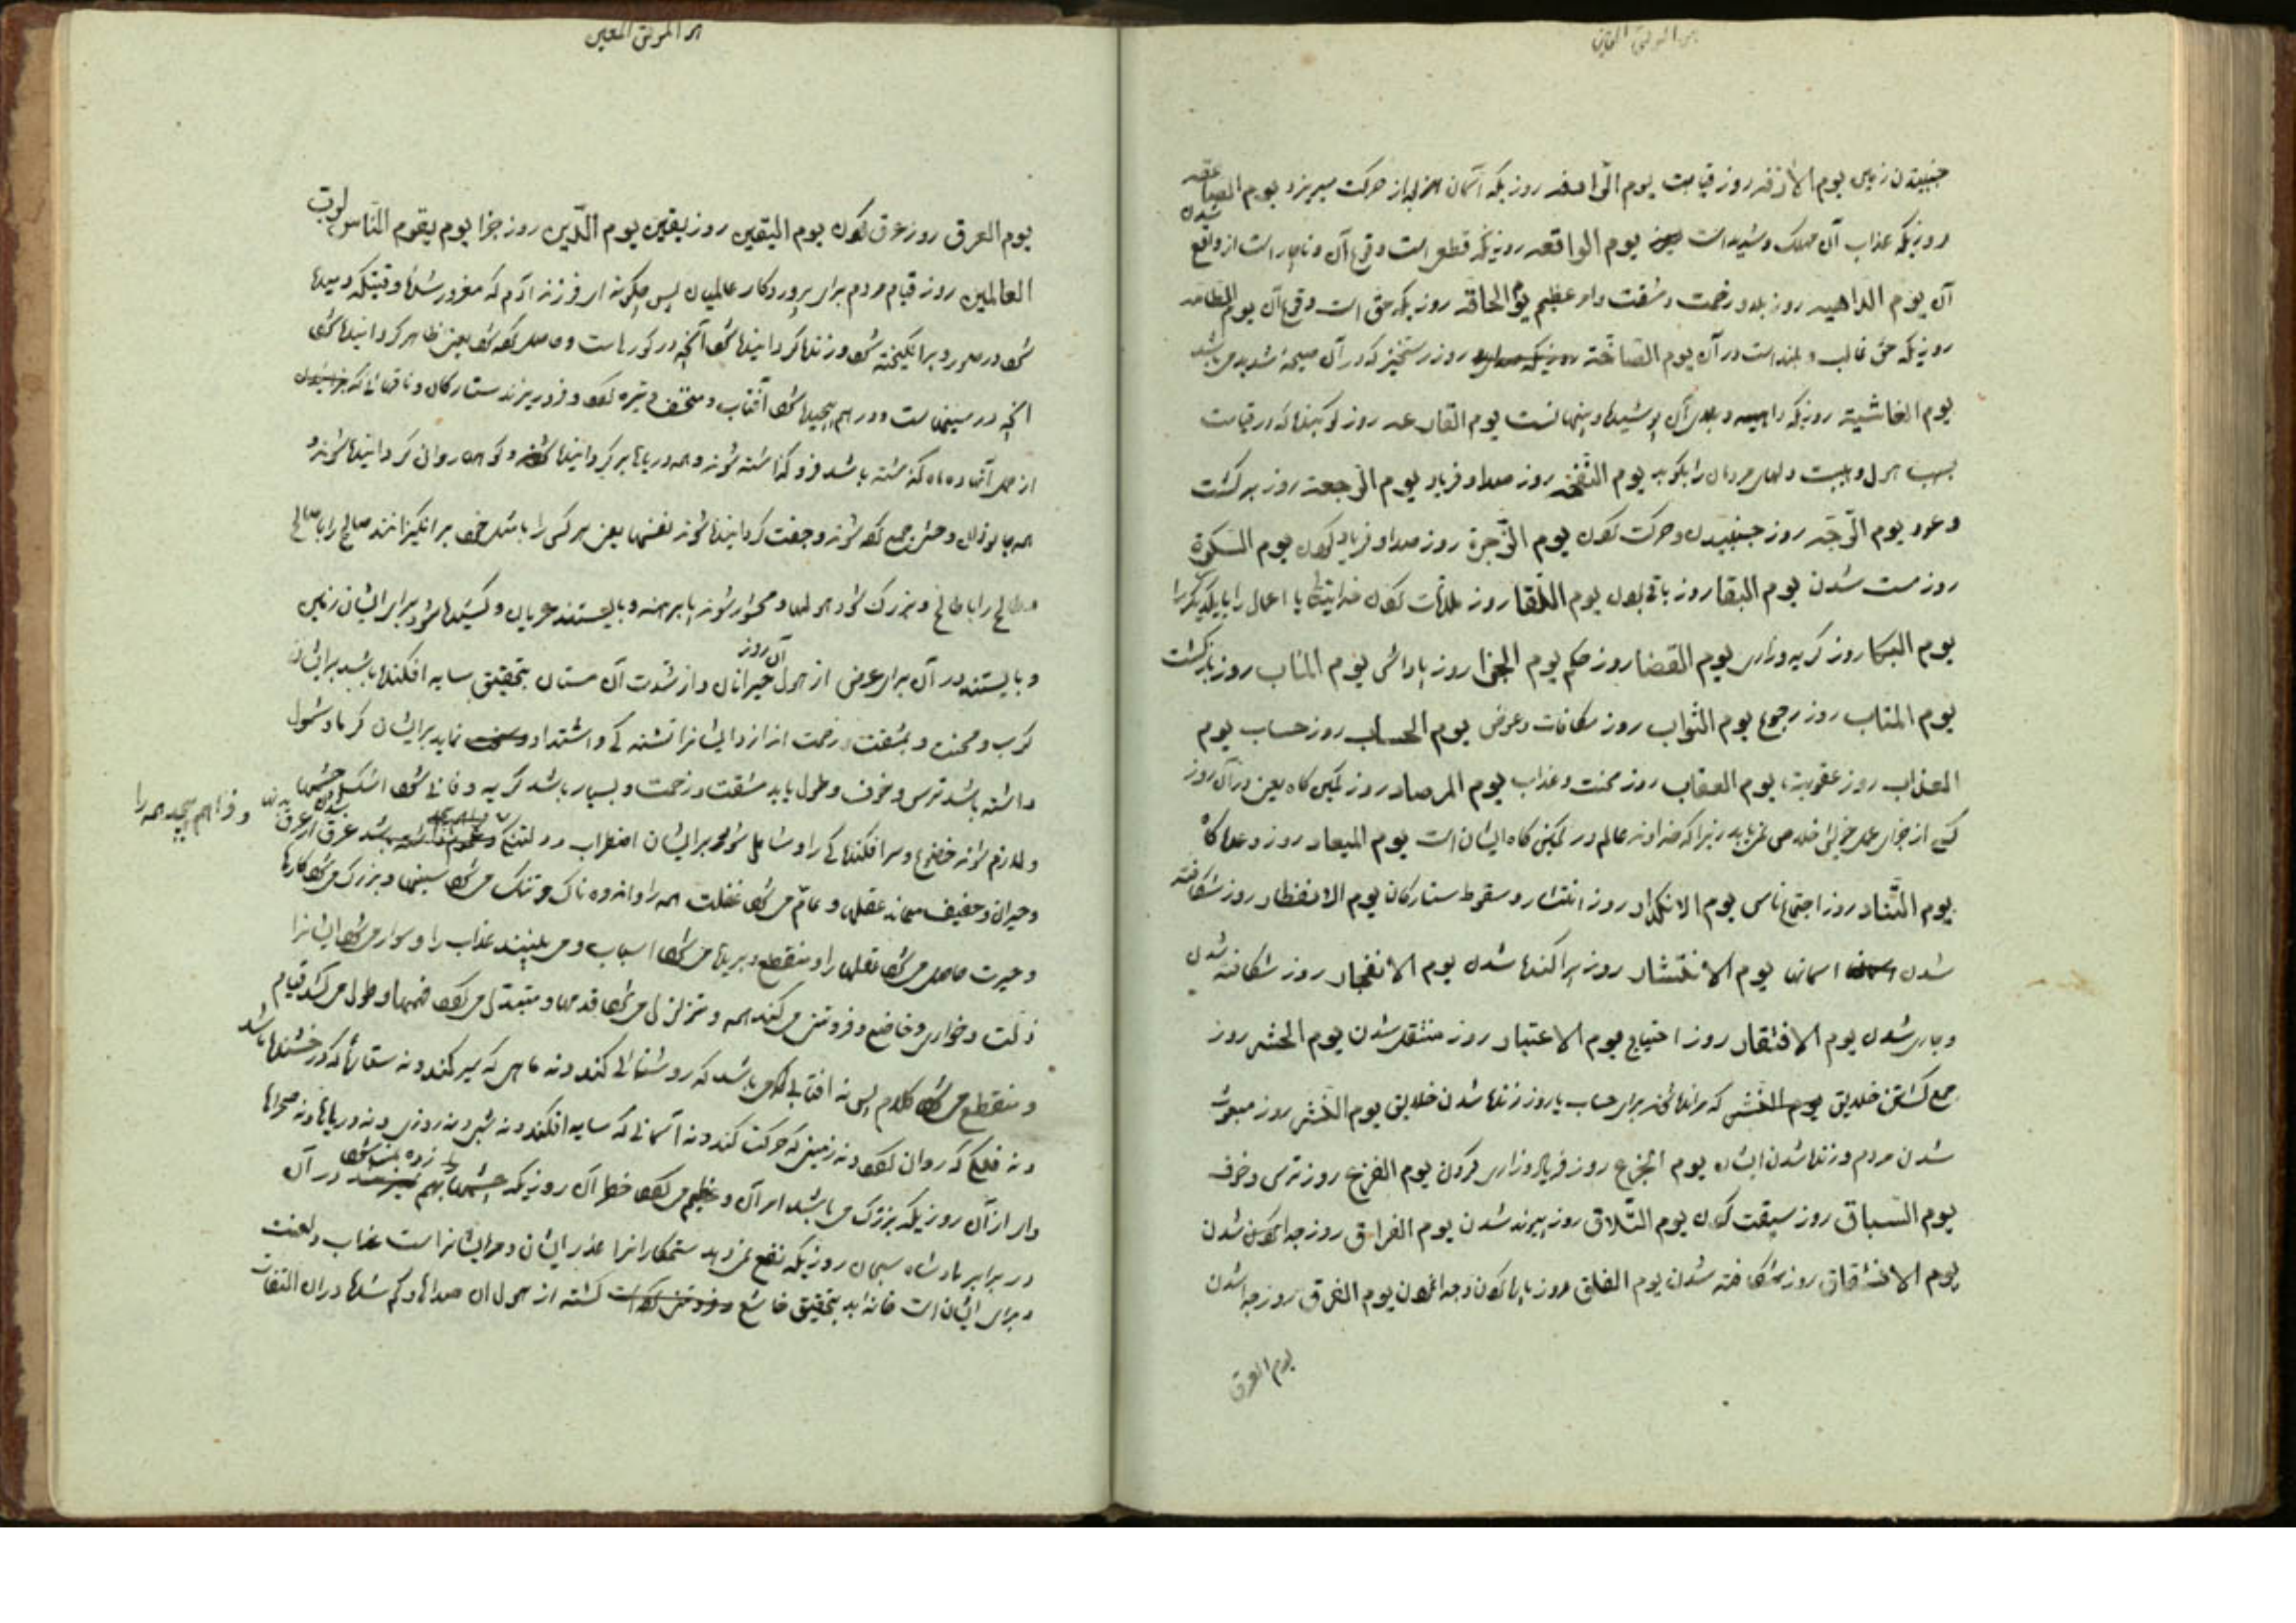 هو الموفق المعین
جنبیدن زمین یوم الازفه روز قیامت یوم الرّاجفه روزیکه آسمان از حرکت میریزد یوم الصاعقه
روزیکه عذاب آن مهلک و شدید است یوم الواقعه روزیکه قطعی است وقوع آن و ناچار است از واقع شدن
آن یوم الداهیه روز بلا و زحمت و مشقت و امر عظیم یوم الحاقه روزیکه حق است وقوع آن یوم الطامه
روزیکه حق غالب و بلند است در آن یوم الصاخّة روز رستخیز که در آن صیحهٔ شدید می باشد
یوم الغاشیة روزیکه آن پوشیده و پنهانست یوم القارعه روز کوبنده که در قیامت
بسبب هول و هیبت دلهای مردمان را بکوبد یوم النفخه روز صدا و فریاد یوم الرّجعة روز برگشت
و عود یوم الرّجّه روز جنبیدن و حرکت کردن یوم الزّجرة روز صدا و فریاد کردن یوم السکرة
روز مست شدن یوم البقا روز باقی بودن یوم اللّقا روز ملاقات کردن یا اعمال را با یکدیگر را
یوم البکا روز گریه و زاری یوم القضا روز حکم یوم الجزا روز پاداش یوم المآب روز بازگشت
یوم المتاب روز رجوع یوم الثواب روز مکافات و عوض یوم الحساب روز حساب یوم
العذاب روز عقوبت یوم العقاب روز محنت و عذاب یوم المرصاد روز کمین گاه یعنی در آن روز
کسی از جزای عمل خویش خلاصی نمی یابد زیرا که خداوند عالم در کمین گاه ایشان است یوم المیعاد روز وعده گاه
یوم التّناد روز اجتماع ناس یوم الانکدار روز انتشار و سقوط ستارگان یوم الانفطار روز شکافته
شدن اسمانها یوم الانتشار روز پراکنده شدن یوم الانفجار روز شکافته شدن
و جاری شدن یوم الافتقار روز احتیاج یوم الاعتبار روز منتقل شدن یوم الحشر روز
جمع گشتن خلایق یوم النشر که برای حساب یا روز زنده شدن خلایق یوم النشر روز مبعوث
شدن مردم و زنده شدن ایشان یوم الجزع روز فریاد و زاری کردن یوم الفزع روز ترس و خوف
یوم السباق روز سبقت کردن یوم التّلاق روز پیوند شدن یوم الفراق روز جدا شدن
یوم الانشقاق روز شکافته شدن یوم الفلق روز پاره کردن و جدا نمودن یوم الفرق روز جدا شدن
یوم العرق
هو الموفق المعین
یوم العرق روز عرق کردن یوم الیقین روز یقین یوم الدّین روز جزا یوم یقوم النّاس لربّ
العالمین روز قیام مردم برای پروردگار عالمیان پس چگونه ای فرزند آدم که مغرور شده وقتیکه دمیده
شود در صور و برانگیخته شود و زنده گردانیده شود آنچه در گورهاست و حاصل کرده شود یعنی ظاهر گردانیده شود
آنچه در سینهاست و در هم پیچیده شود آفتاب و منخسف و تیره گردد و فرو ریزند ستارگان و ناقهائی که
از حمل آنها ده ماه گذشته باشد فرو گذاشته شوند و همه دریاها پر گردانیده شوند و کوهها روان گردانیده شوند و
همه جانوران وحشی جمع کرده شوند و جفت گردانیده شوند نفسها یعنی هر کس را با مثل خود برانگیزانند صالح را با صالح
و طالح را با طالح و بزرگ شود هولها و محشور شوند پا برهنه و بایستند عریان و کشیده شود برای ایشان زمین
و بایستند در آن برای عرض از هول آن روز حیرانان و از شدت آن مستان بتحقیق سایه افکنده باشد برایشان
کرب و محنت و بمشقت و زحمت اندازد ایشانرا تشنگی و اشتداد نماید برایشان گرما و شمول
داشته باشد ترس و خوف و طول یابد مشقت و زحمت و بسیار باشد گریه و فانی شود اشک چشمها
و لازم شوند خضوع و سرافکندگی را و شامل شود برایشان اضطراب و دلتنگی عرق از عرق بدنها و فراهم پیچد همه را
و حیران و خفیف میماند عقلها و عامّ می شود غفلت همه را و اندوه ناک و تنگ می شود سینها و بزرگ می شود کارها
و حیرت حاصل می شود عقلها را و منقطع و بریده می شود اسباب و می بینند عذاب را و سوار می شود ایشانرا
ذلت و خواری و خاضع و فروتنی می کند همه و متزلزل می شود قدمها و متبدل می گردد فهمها و طول می کشد قیام
و منقطع می شود کلام پس نه افتابی می باشد که روشنائی کند و نه ماهی که سیر کند و نه ستاره که درخشنده باشد
و نه فلکی که روان گردد و نه زمینی که حرکت کند و نه آسمانی که سایه افکند و نه شبی و نه روزی و نه دریاها و نه صحراها
وای از آن روزیکه بزرگ می باشد امر آن و عظیم می گردد خطر آن روزیکه چشمها در آن
در برابر پادشاه سبحان روزیکه نفع نمی دهد ستمکارانرا عذر ایشان و مر ایشانراست عذاب و لعنت
و برای ایشان است خانه بد بتحقیق خاشع گشته از هول آن صداها و کم شده در آن التفات